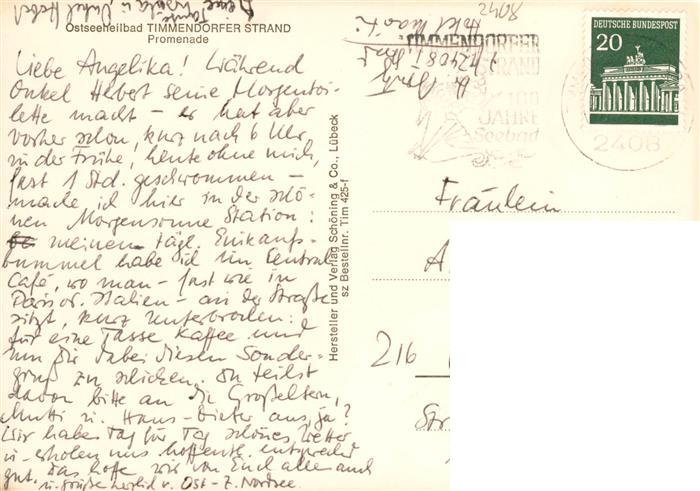 Ostseeheilbad TIMMENDORFER STRAND
Promenade
Liebe Angelika! Während
Onkel Hebert seine Morgentoi-
lette macht – er hat aber
vorher schon, kurz nach 6 Uhr,
in der Frühe, heute ohne mich,
fast 1 Std. geschwommen –
mache ich hier in der schö-
nen Morgensonne Station:
meinen tägl. Einkaufs-
bummel habe ich im Central
Café, wo man – fast wie in
Paris od. Italien – an der Straße
sitzt, kurz unterbrochen:
für eine Tasse Kaffee und
um Dir dabei diesen Sonder-
gruß zu schicken. Du teilst
davon bitte an die Großeltern,
Mutti u. Hans-Dieter aus, ja?
Wir haben Tag für Tag schönes Wetter
u. erholen uns hoffentl. entsprechend
gut. Das hoffe wir von Euch allen auch
u. grüße herzlich v. Ost- z. Nordsee.
Deine Tante
Ursula u. Onkel Hebert
Hersteller und Verlag Schöning & Co., Lübeck
sz Bestellnr. Tim 425-f
2408
TIMMENDORFER
STRAND
100
JAHRE
Seebad
DEUTSCHE BUNDESPOST
20
2408
Fräulein
A
216
Str